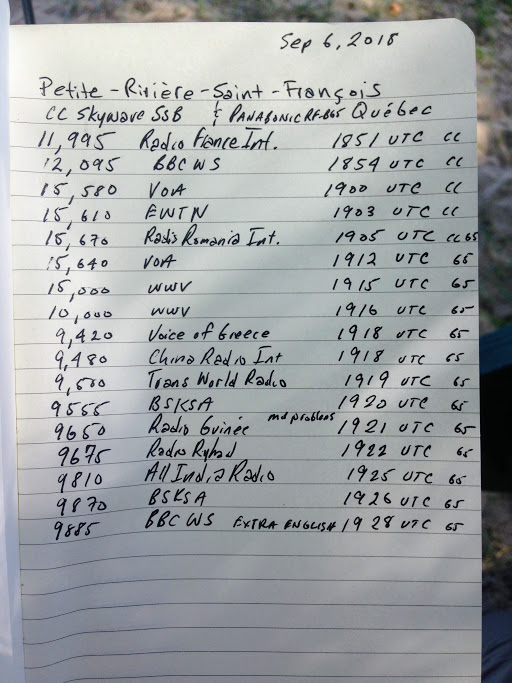 Sep 6, 2018
Petite-Rivière-Saint-François
CC Skywave SSB & PANASONIC RF-B65 Québec
11,995 Radio France Int. 1851 UTC CC
12,095 BBC WS 1854 UTC CC
15,580 VOA 1900 UTC CC
15,610 EWTN 1903 UTC CC
15,670 Radio Romania Int. 1905 UTC CC 65
15,640 VOA 1912 UTC 65
15,000 WWV 1915 UTC 65
10,000 WWV 1916 UTC 65
9,420 Voice of Greece 1918 UTC 65
9,480 China Radio Int 1918 UTC 65
9,500 Trans World Radio 1919 UTC 65
9555 BSKSA 1920 UTC 65
9650 Radio Guinée mod problems 1921 UTC 65
9675 Radio Ryhad 1922 UTC 65
9810 All India Radio 1925 UTC 65
9870 BSKSA 1926 UTC 65
9885 BBC WS EXTRA ENGLISH 1928 UTC 65